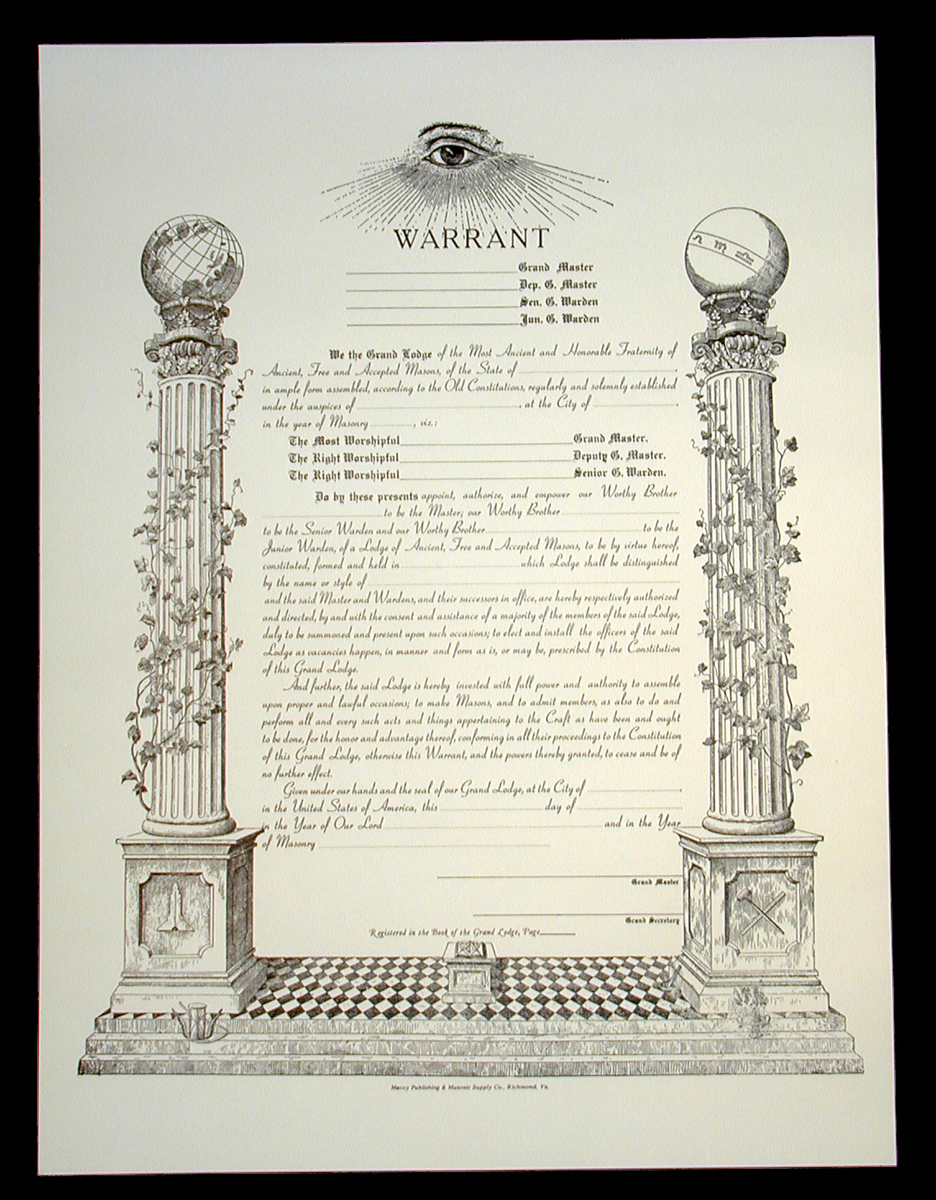 WARRANT
Grand Master
Dep. G. Master
Sen. G. Warden
Jun. G. Warden
We the Grand Lodge of the Most Ancient and Honorable Fraternity of
Ancient, Free and Accepted Masons, of the State of
in ample form assembled, according to the Old Constitutions, regularly and solemnly established
under the auspices of , at the City of
in the year of Masonry , viz.:
The Most Worshipful Grand Master.
The Right Worshipful Deputy G. Master.
The Right Worshipful Senior G. Warden.
Do by these presents appoint, authorize, and empower our Worthy Brother
to be the Master; our Worthy Brother
to be the Senior Warden and our Worthy Brother to be the
Junior Warden, of a Lodge of Ancient, Free and Accepted Masons, to be by virtue hereof,
constituted, formed and held in which Lodge shall be distinguished
by the name or style of
and the said Master and Wardens, and their successors in office, are hereby respectively authorized
and directed, by and with the consent and assistance of a majority of the members of the said Lodge,
duly to be summoned and present upon such occasions; to elect and install the officers of the said
Lodge as vacancies happen, in manner and form as is, or may be, prescribed by the Constitution
of this Grand Lodge.
And further, the said Lodge is hereby invested with full power and authority to assemble
upon proper and lawful occasions; to make Masons, and to admit members, as also to do and
perform all and every such acts and things appertaining to the Craft as have been and ought
to be done, for the honor and advantage thereof, conforming in all their proceedings to the Constitution
of this Grand Lodge, otherwise this Warrant, and the powers thereby granted, to cease and be of
no further effect.
Given under our hands and the seal of our Grand Lodge, at the City of ,
in the United States of America, this day of
in the Year of Our Lord and in the Year
of Masonry
Grand Master
Grand Secretary
Registered in the Book of the Grand Lodge, Page
Macoy Publishing & Masonic Supply Co., Richmond, Va.